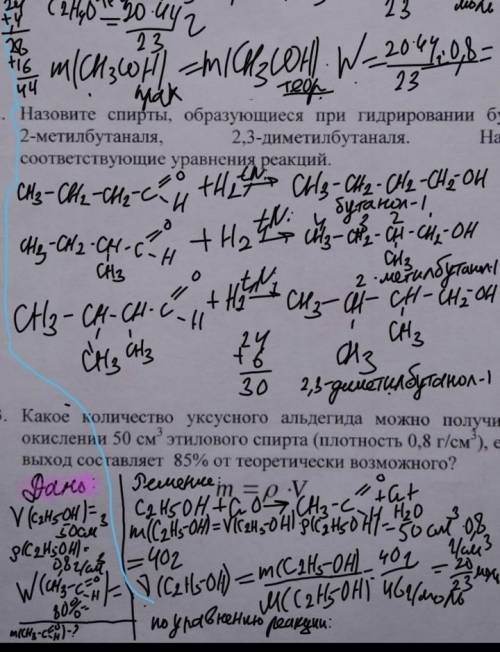 24
+4
28
+16
44
20·44
23
г
23
моль
m(CH3COH) = m(CH3COH)· W = 20·44·0,8 =
прак теор. 23
Назовите спирты, образующиеся при гидрировании
2-метилбутаналя, 2,3-диметилбутаналя.
соответствующие уравнения реакций.
CH3-CH2-CH2-C =O -H + H2 t,Ni → CH3-CH2-CH2-CH2-OH
бутанол-1
CH3-CH2-CH-C =O -H + H2 t,Ni → 4 3 2 CH3-CH2-CH-CH2-OH
CH3 CH3
2-метилбутанол-1
CH3-CH-CH-C =O -H + H2 t,Ni → CH3-CH-CH-CH2-OH
CH3 CH3 CH3 CH3
24
+6
30
2,3-диметилбутанол-1
3. Какое количество уксусного альдегида можно
окислении 50 см3 этилового спирта (плотность 0,8 г/см3),
выход составляет 85% от теоретически возможного?
Дано:
V(C2H5OH)=
50см3
ρ(C2H5OH)=
0,8г/см3
W(CH3-C=O-H)=
80%
m(CH3-C=O-H)-?
Решение:
m = ρ·V
C2H5OH + CuO → CH3-C =O -H + Cu + H2O
m(C2H5OH) = V(C2H5OH)·ρ(C2H5OH) = 50 см3·0,8 г/см3
= 40г
ν(C2H5-OH) = m(C2H5-OH) / M(C2H5-OH) = 40г / 46г/моль = 20/23 моль
по уравнению реакции: